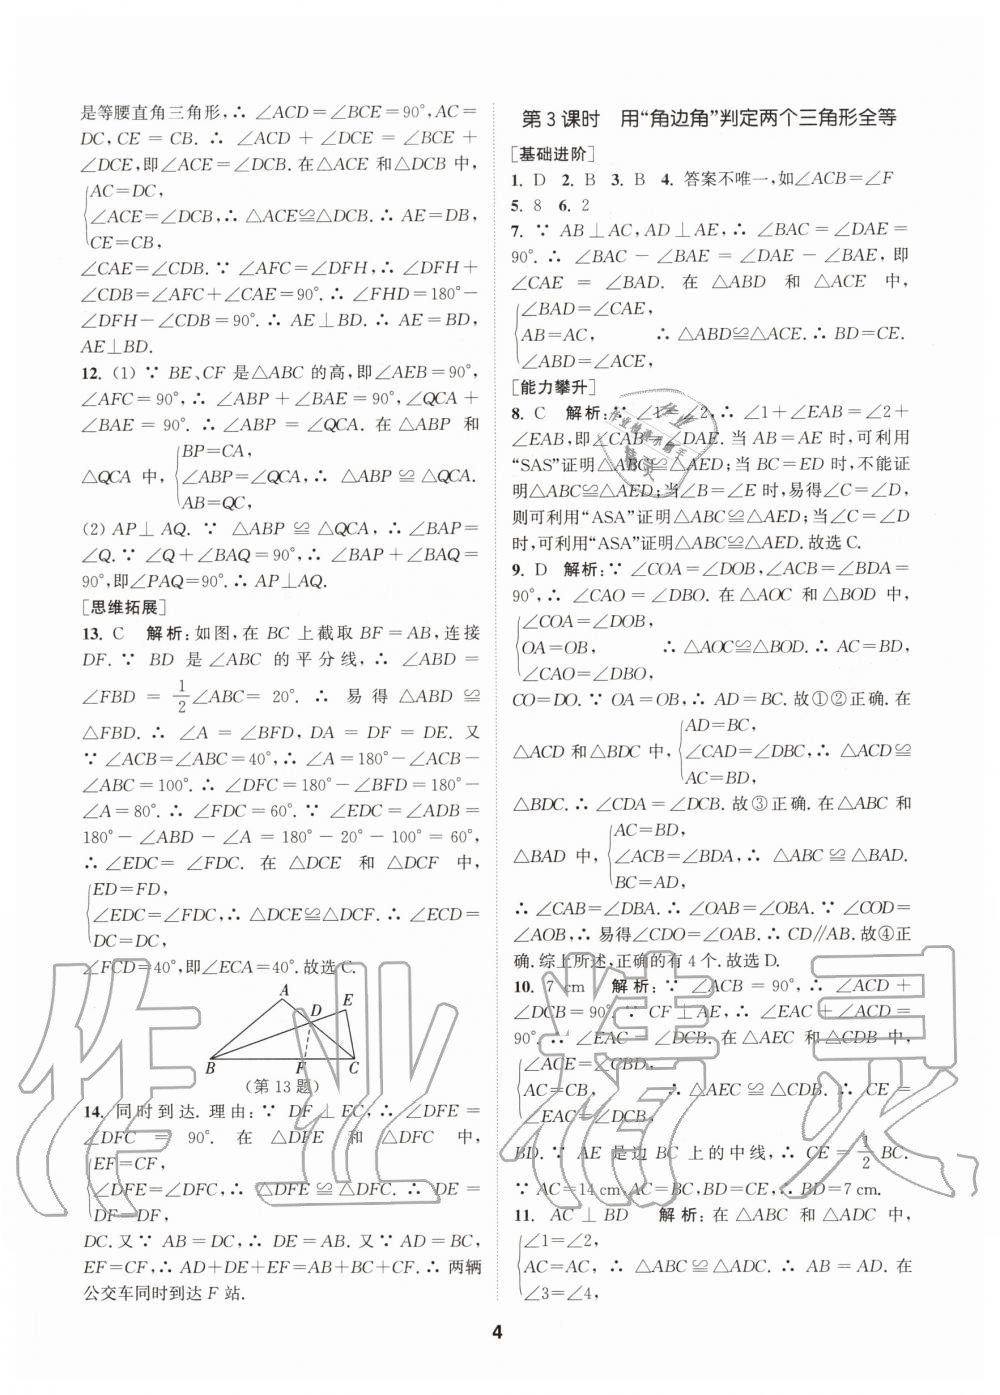 是等腰直角三角形,∴ ∠ACD=∠BCE=90°,AC=
DC,CE=CB.∴ ∠ACD+∠DCE=∠BCE+
∠DCE,即∠ACE=∠DCB.在△ACE和△DCB中,
AC=DC,
∠ACE=∠DCB,∴ △ACE≌△DCB.∴ AE=DB,
CE=CB,
∠CAE=∠CDB.∵ ∠AFC=∠DFH,∴ ∠DFH+
∠CDB=∠AFC+∠CAE=90°.∴ ∠FHD=180°-
∠DFH-∠CDB=90°.∴ AE⊥BD.∴ AE=BD,
AE⊥BD.
12. (1) ∵ BE、CF是△ABC的高,即∠AEB=90°,
∠AFC=90°,∴ ∠ABP+∠BAE=90°,∠QCA+
∠BAE=90°.∴ ∠ABP=∠QCA.在△ABP和
△QCA中,
BP=CA,
∠ABP=∠QCA,∴ △ABP≌△QCA.
AB=QC,
(2) AP⊥AQ.∵ △ABP≌△QCA,∴ ∠BAP=
∠Q.∵ ∠Q+∠BAQ=90°,∴ ∠BAP+∠BAQ=
90°,即∠PAQ=90°.∴ AP⊥AQ.
[思维拓展]
13. C 解析:如图,在BC上截取BF=AB,连接
DF.∵ BD是∠ABC的平分线,∴ ∠ABD=
∠FBD=1/2∠ABC=20°.∴ 易得△ABD≌
△FBD.∴ ∠A=∠BFD,DA=DF=DE.又
∵ ∠ACB=∠ABC=40°,∴ ∠A=180°-∠ACB-
∠ABC=100°.∴ ∠DFC=180°-∠BFD=180°-
∠A=80°.∴ ∠FDC=60°.∵ ∠EDC=∠ADB=
180°-∠ABD-∠A=180°-20°-100°=60°,
∴ ∠EDC=∠FDC.在△DCE和△DCF中,
ED=FD,
∠EDC=∠FDC,∴ △DCE≌△DCF.∴ ∠ECD=
DC=DC,
∠FCD=40°,即∠ECA=40°.故选C.
A
E
D
B
F
C
(第13题)
14. 同时到达.理由:∵ DF⊥EC,∴ ∠DFE=
∠DFC=90°.在△DFE和△DFC中,
EF=CF,
∠DFE=∠DFC,∴ △DFE≌△DFC.∴ DE=
DF=DF,
DC.又∵ AB=DC,∴ DE=AB.又∵ AD=BC,
EF=CF,∴ AD+DE+EF=AB+BC+CF.∴ 两辆
公交车同时到达F站.
第3课时 用“角边角”判定两个三角形全等
[基础进阶]
1. D 2. B 3. B 4. 答案不唯一,如∠ACB=∠F
5. 8 6. 2
7. ∵ AB⊥AC,AD⊥AE,∴ ∠BAC=∠DAE=
90°.∴ ∠BAC-∠BAE=∠DAE-∠BAE,即
∠CAE=∠BAD.在△ABD和△ACE中,
∠BAD=∠CAE,
AB=AC, ∴ △ABD≌△ACE.∴ BD=CE.
∠ABD=∠ACE,
[能力攀升]
8. C 解析:∵ ∠1=∠2,∴ ∠1+∠EAB=∠2+
∠EAB,即∠CAB=∠DAE.当AB=AE时,可利用
“SAS”证明△ABC≌△AED;当BC=ED时,不能证
明△ABC≌△AED;当∠B=∠E时,易得∠C=∠D,
则可利用“ASA”证明△ABC≌△AED;当∠C=∠D
时,可利用“ASA”证明△ABC≌△AED.故选C.
9. D 解析:∵ ∠COA=∠DOB,∠ACB=∠BDA=
90°,∴ ∠CAO=∠DBO.在△AOC和△BOD中,
∠COA=∠DOB,
OA=OB, ∴ △AOC≌△BOD.∴ AC=BD,
∠CAO=∠DBO,
CO=DO.∵ OA=OB,∴ AD=BC.故①②正确.在
△ACD和△BDC中,
AD=BC,
∠CAD=∠DBC,∴ △ACD≌
AC=BD,
△BDC.∴ ∠CDA=∠DCB.故③正确.在△ABC和
△BAD中,
AC=BD,
∠ACB=∠BDA,∴ △ABC≌△BAD.
BC=AD,
∴ ∠CAB=∠DBA.∴ ∠OAB=∠OBA.∵ ∠COD=
∠AOB,∴ 易得∠CDO=∠OAB.∴ CD∥AB.故④正
确.综上所述,正确的有4个.故选D.
10. 7 cm 解析:∵ ∠ACB=90°,∴ ∠ACD+
∠DCB=90°.∵ CF⊥AE,∴ ∠EAC+∠ACD=
90°.∴ ∠EAC=∠DCB.在△AEC和△CDB中,
∠ACE=∠CBD,
AC=CB, ∴ △AEC≌△CDB.∴ CE=
∠EAC=∠DCB,
BD.∵ AE是边BC上的中线,∴ CE=1/2BC.
∵ AC=14 cm,AC=BC,BD=CE,∴ BD=7 cm.
11. AC⊥BD 解析:在△ABC和△ADC中,
∠1=∠2,
AC=AC,∴ △ABC≌△ADC.∴ AB=AD.在
∠3=∠4,
4
作业精灵